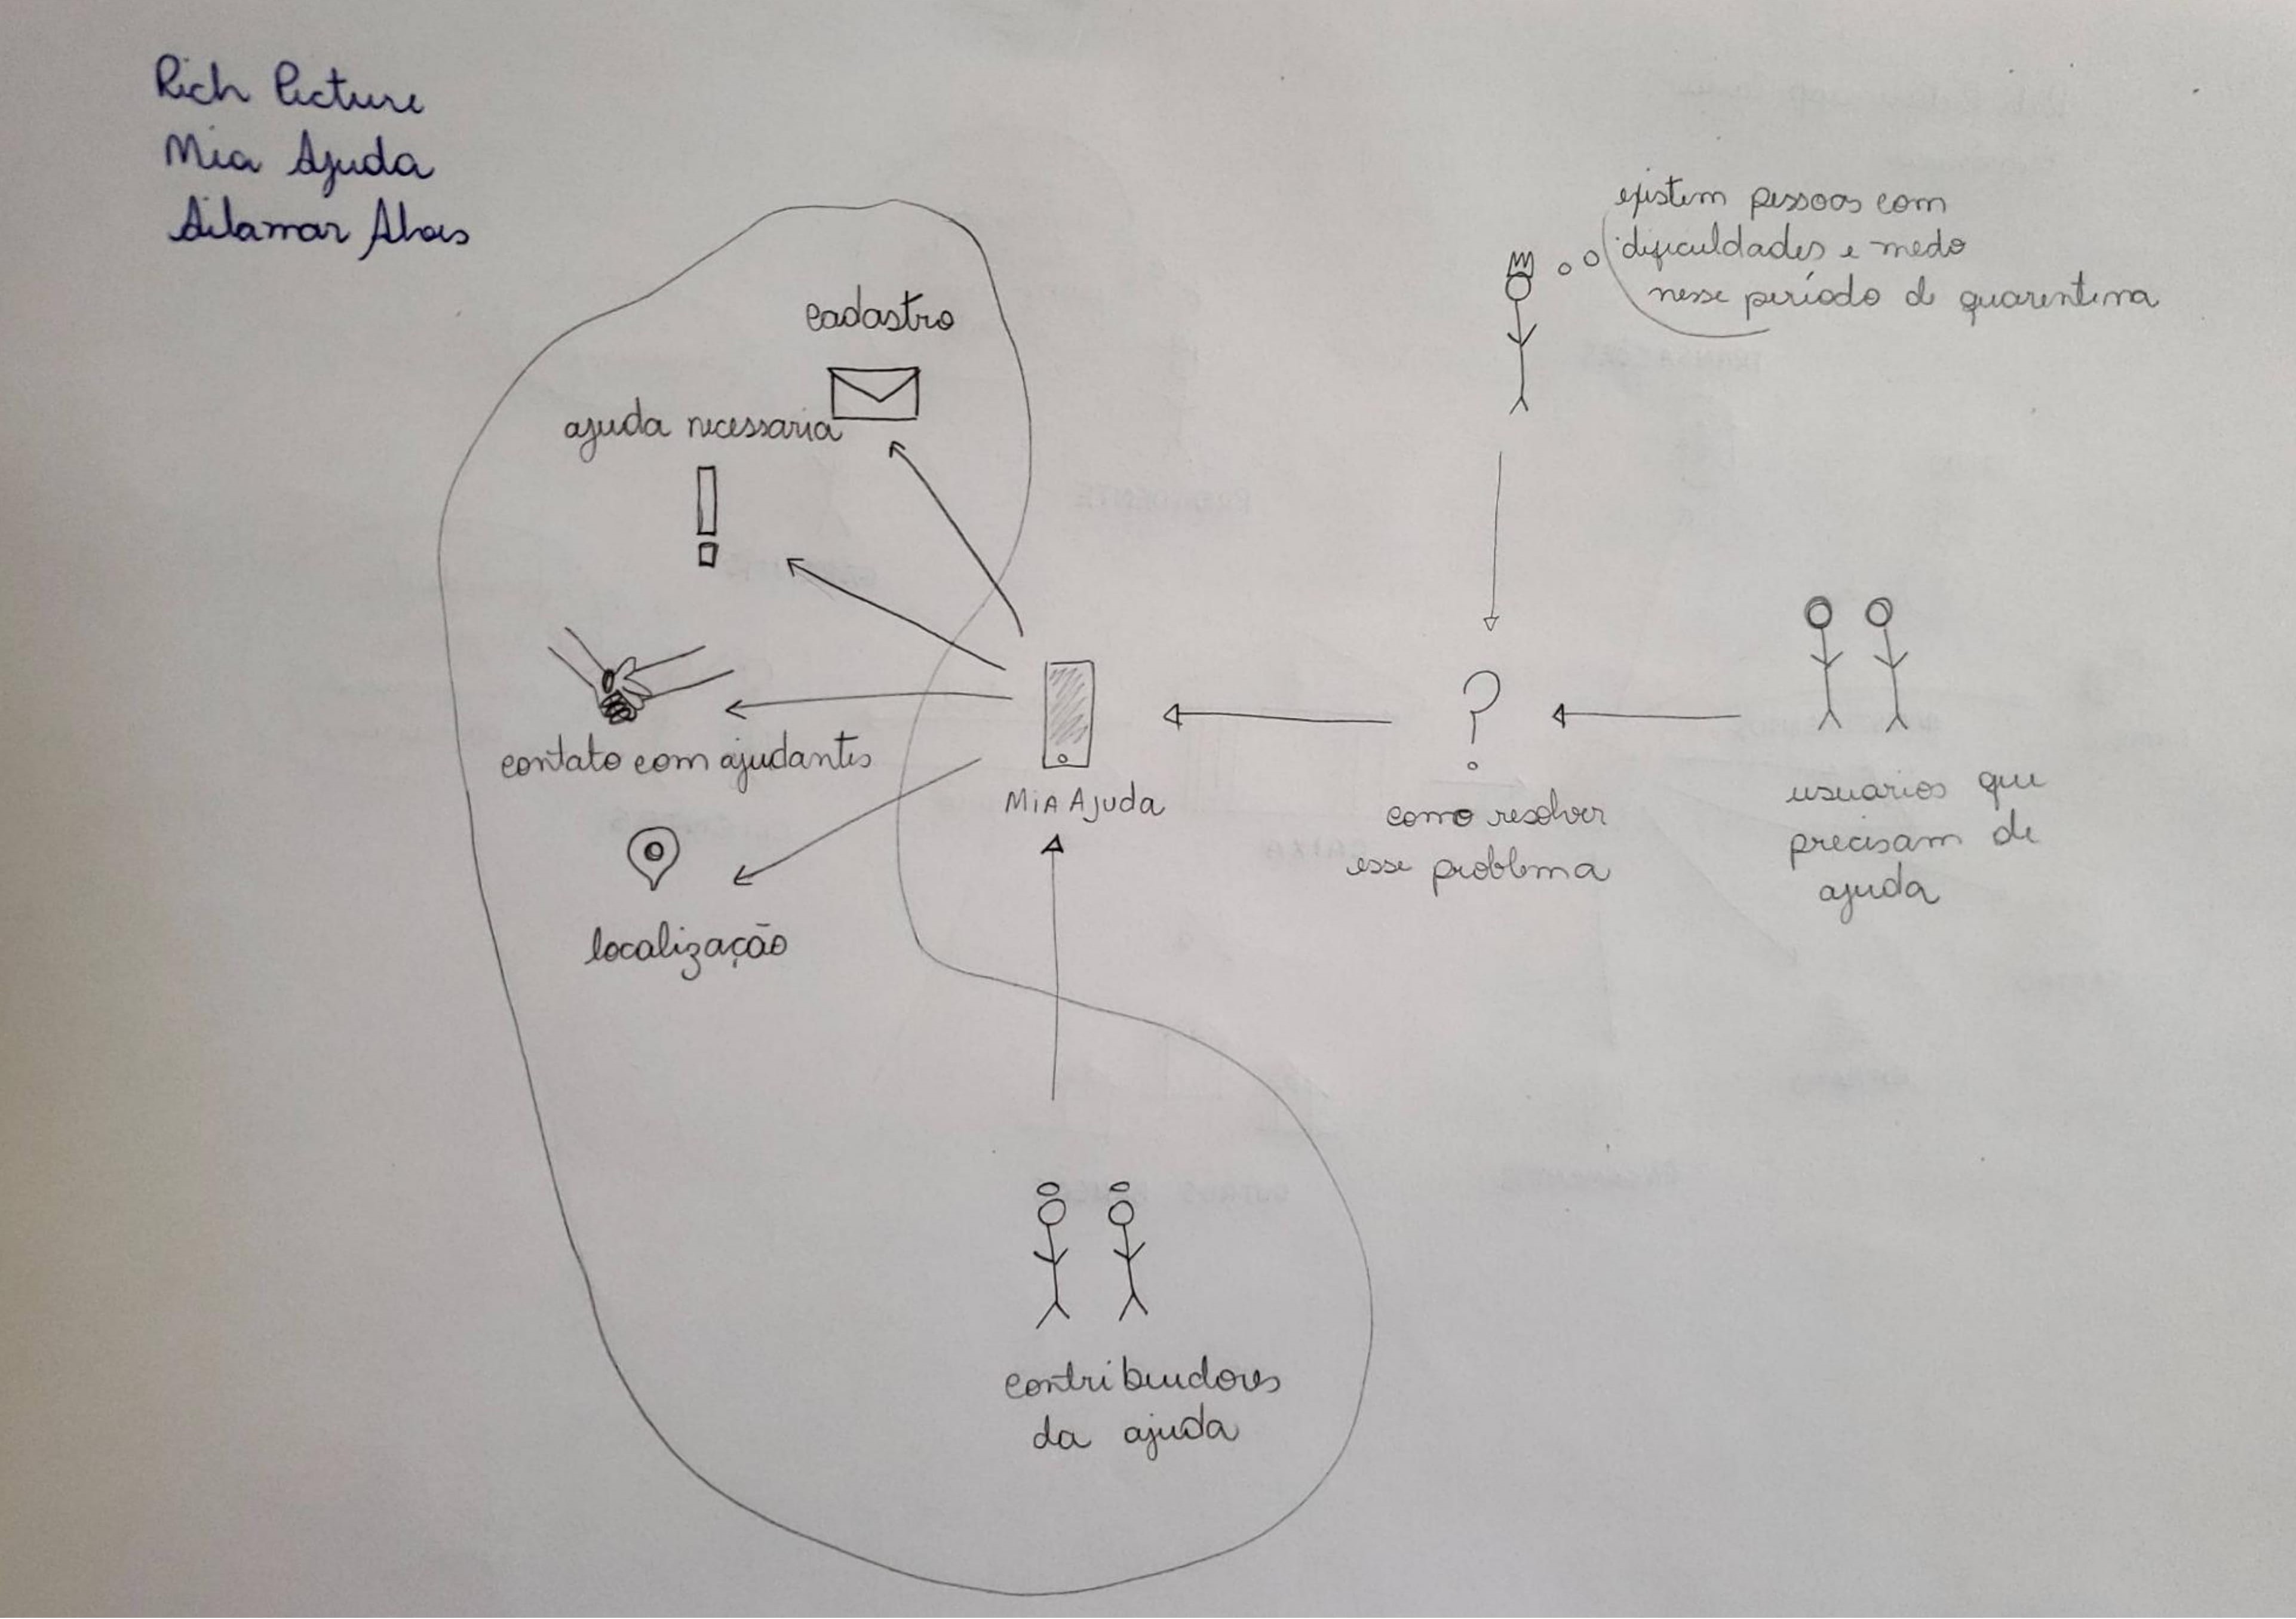 Rich Picture
Mia Ajuda
existem pessoas com
dificuldades e medo
nesse período de quarentena
cadastro
ajuda necessaria
contato com ajudantes
localização
MiA AJuda
como resolver
esse problema
usuarios que
precisam de
ajuda
contribuidores
da ajuda